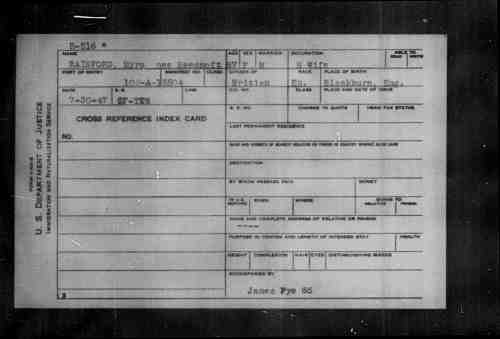 R-516
NAME AGE SEX MARRIED OCCUPATION ABLE TO READ WRITE
RAINFORD, Myra nee F M H Wife
PORT OF ENTRY MANIFEST NO. CLASS CITIZEN OF RACE PLACE OF BIRTH
British En. Blackburn, Eng.
DATE S.S. LINE C.O. NO. CLASS PLACE AND DATE OF ISSUE
7-30-47
R. P. NO. CHARGE TO QUOTA HEAD TAX STATUS
CROSS REFERENCE INDEX CARD
LAST PERMANENT RESIDENCE
NO.
NAME AND ADDRESS OF NEAREST RELATIVE OR FRIEND IN COUNTRY WHENCE ALIEN CAME
DESTINATION
BY WHOM PASSAGE PAID MONEY
IN U.S. BEFORE WHEN WHERE GOING TO RELATIVE FRIEND
NAME AND COMPLETE ADDRESS OF RELATIVE OR FRIEND
PURPOSE IN COMING AND LENGTH OF INTENDED STAY HEALTH
HEIGHT COMPLEXION HAIR EYES DISTINGUISHING MARKS
ACCOMPANIED BY
James Pye 65
U. S. DEPARTMENT OF JUSTICE
IMMIGRATION AND NATURALIZATION SERVICE